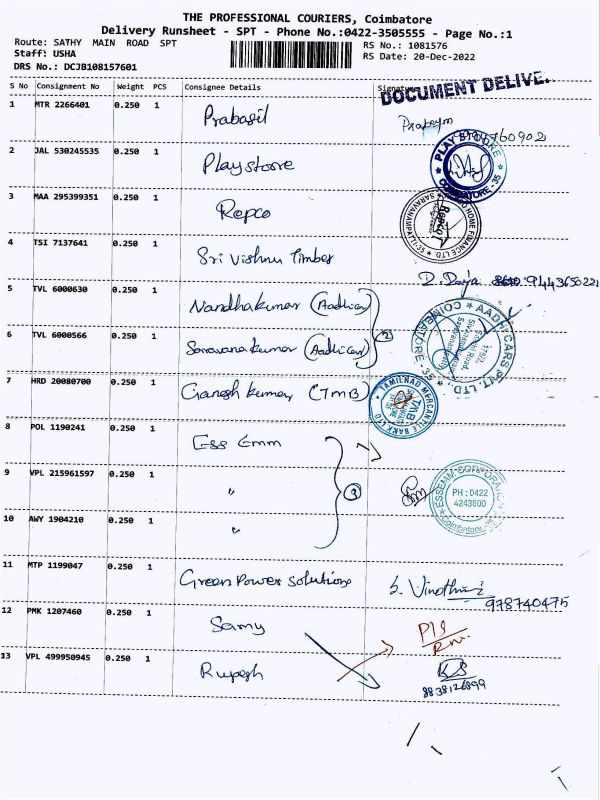 THE PROFESSIONAL COURIERS, Coimbatore
Delivery Runsheet - SPT - Phone No.:0422-3505555 - Page No.:1
Route: SATHY MAIN ROAD SPT
RS No.: 1081576
Staff: USHA
RS Date: 20-Dec-2022
DRS No.: DCJB108157601
S No Consignment No Weight PCS Consignee Details Signature
DOCUMENT DELIVE.
1 MTR 2266401 0.250 1 Prabagil
2 JAL 530245535 0.250 1 Playstoore
PLAY STOORE
COIMBATORE-35
3 MAA 295399351 0.250 1 Repco
REPCO HOME FINANCE LTD
SARAVANAMPATTI-35
4 TSI 7137641 0.250 1 Sri Vishnu Timber
5 TVL 6000630 0.250 1 Nandhakumar (Aadhi Car)
AADHI CARS PVT. LTD.
COIMBATORE-35
6 TVL 6000566 0.250 1 Saravanakumar (Aadhi Car) 2
7 HRD 20080700 0.250 1 Ganesh Kumar (TMB)
TAMILNAD MERCANTILE BANK LTD
8 POL 1190241 0.250 1 Ess Emm
9 VPL 215961597 0.250 1 " 3
ESSEMM CORPORATION
PH : 0422
4243800
Coimbatore
10 AWY 1904210 0.250 1 "
11 MTP 1199047 0.250 1 Green Power Solutions
978740475
12 PMK 1207460 0.250 1 Samy
13 VPL 499950945 0.250 1 Rupesh
KS
8838126899